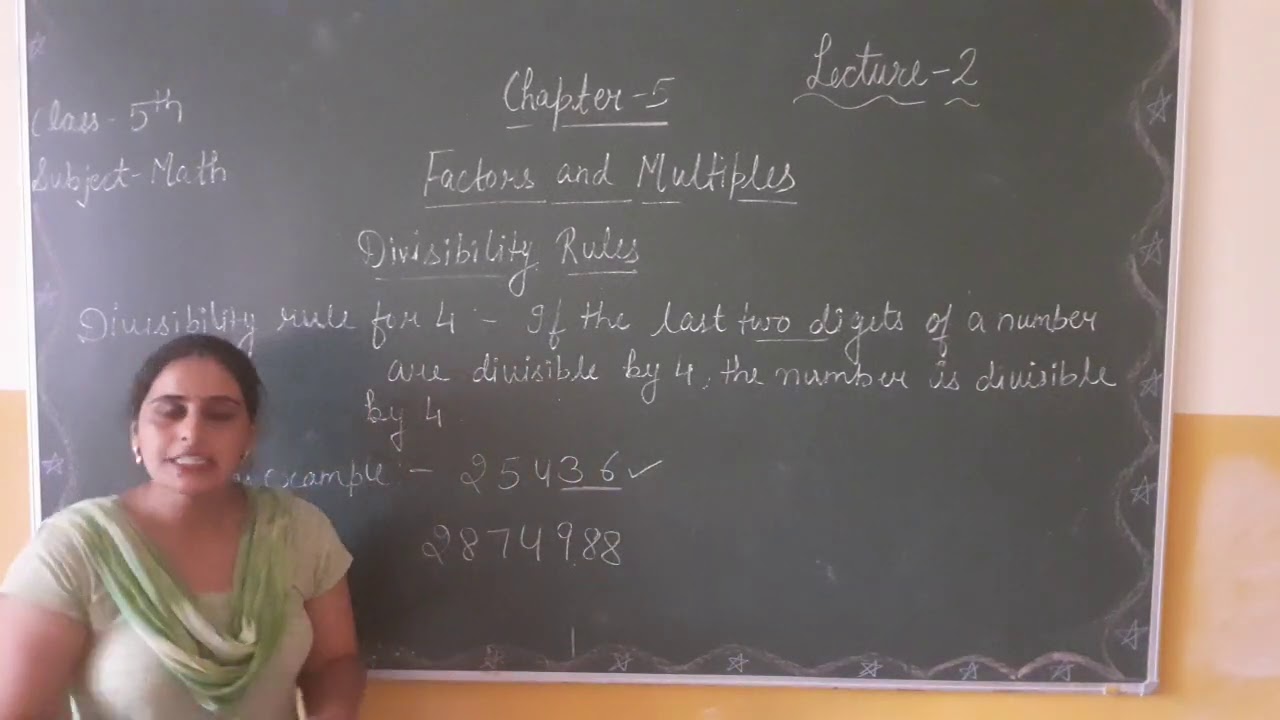 Lecture-2
Chapter-5
Class-5th
Subject-Math
Factors and Multiples
Divisibility Rules
Divisibility rule for 4 - If the last two digits of a number
are divisible by 4, the number is divisible
by 4
example :- 25436 ✓
2874988